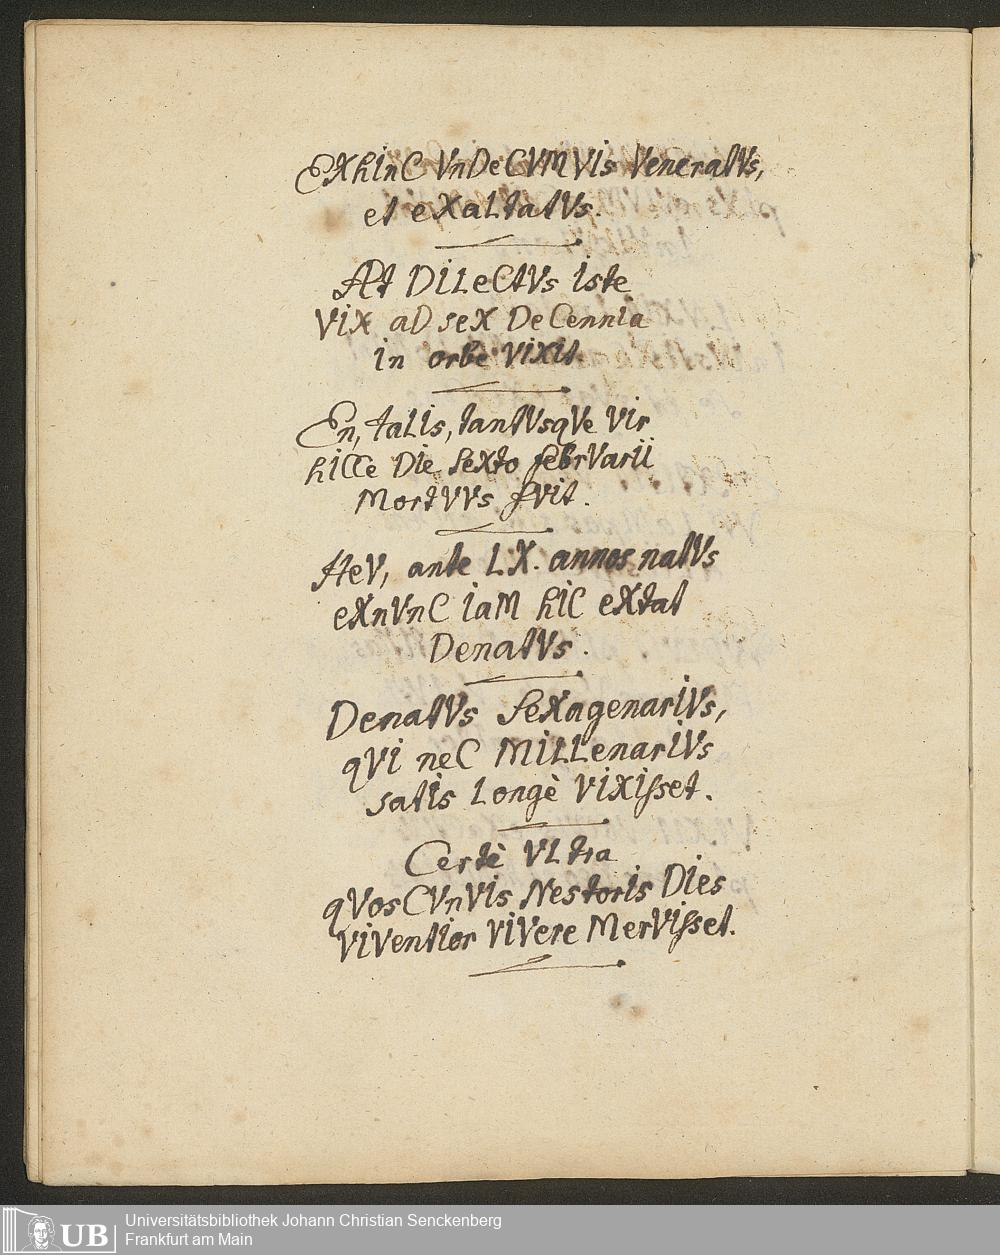 EXhInC VnDeCVMVIs VeneratVs,
et eXaLtatVs.
At DILeCtVs iste
VIX aD seX DeCennIa
in orbe VIXit.
En, taLIs, tantVsqVe VIr
hICCe DIe SeXto febrVarii
MortVVs fVit.
HeV, ante LX. annos natVs
eXnVnC IaM hIC eXtat
DenatVs.
DenatVs SeXagenarIVs,
qVI neC MILLenarIVs
satIs Longè VIXIsset.
Certè VLtra
qVosCVnVIs Nestoris DIes
VIVentior VIVere MerVIsset.
UB
Universitätsbibliothek Johann Christian Senckenberg
Frankfurt am Main